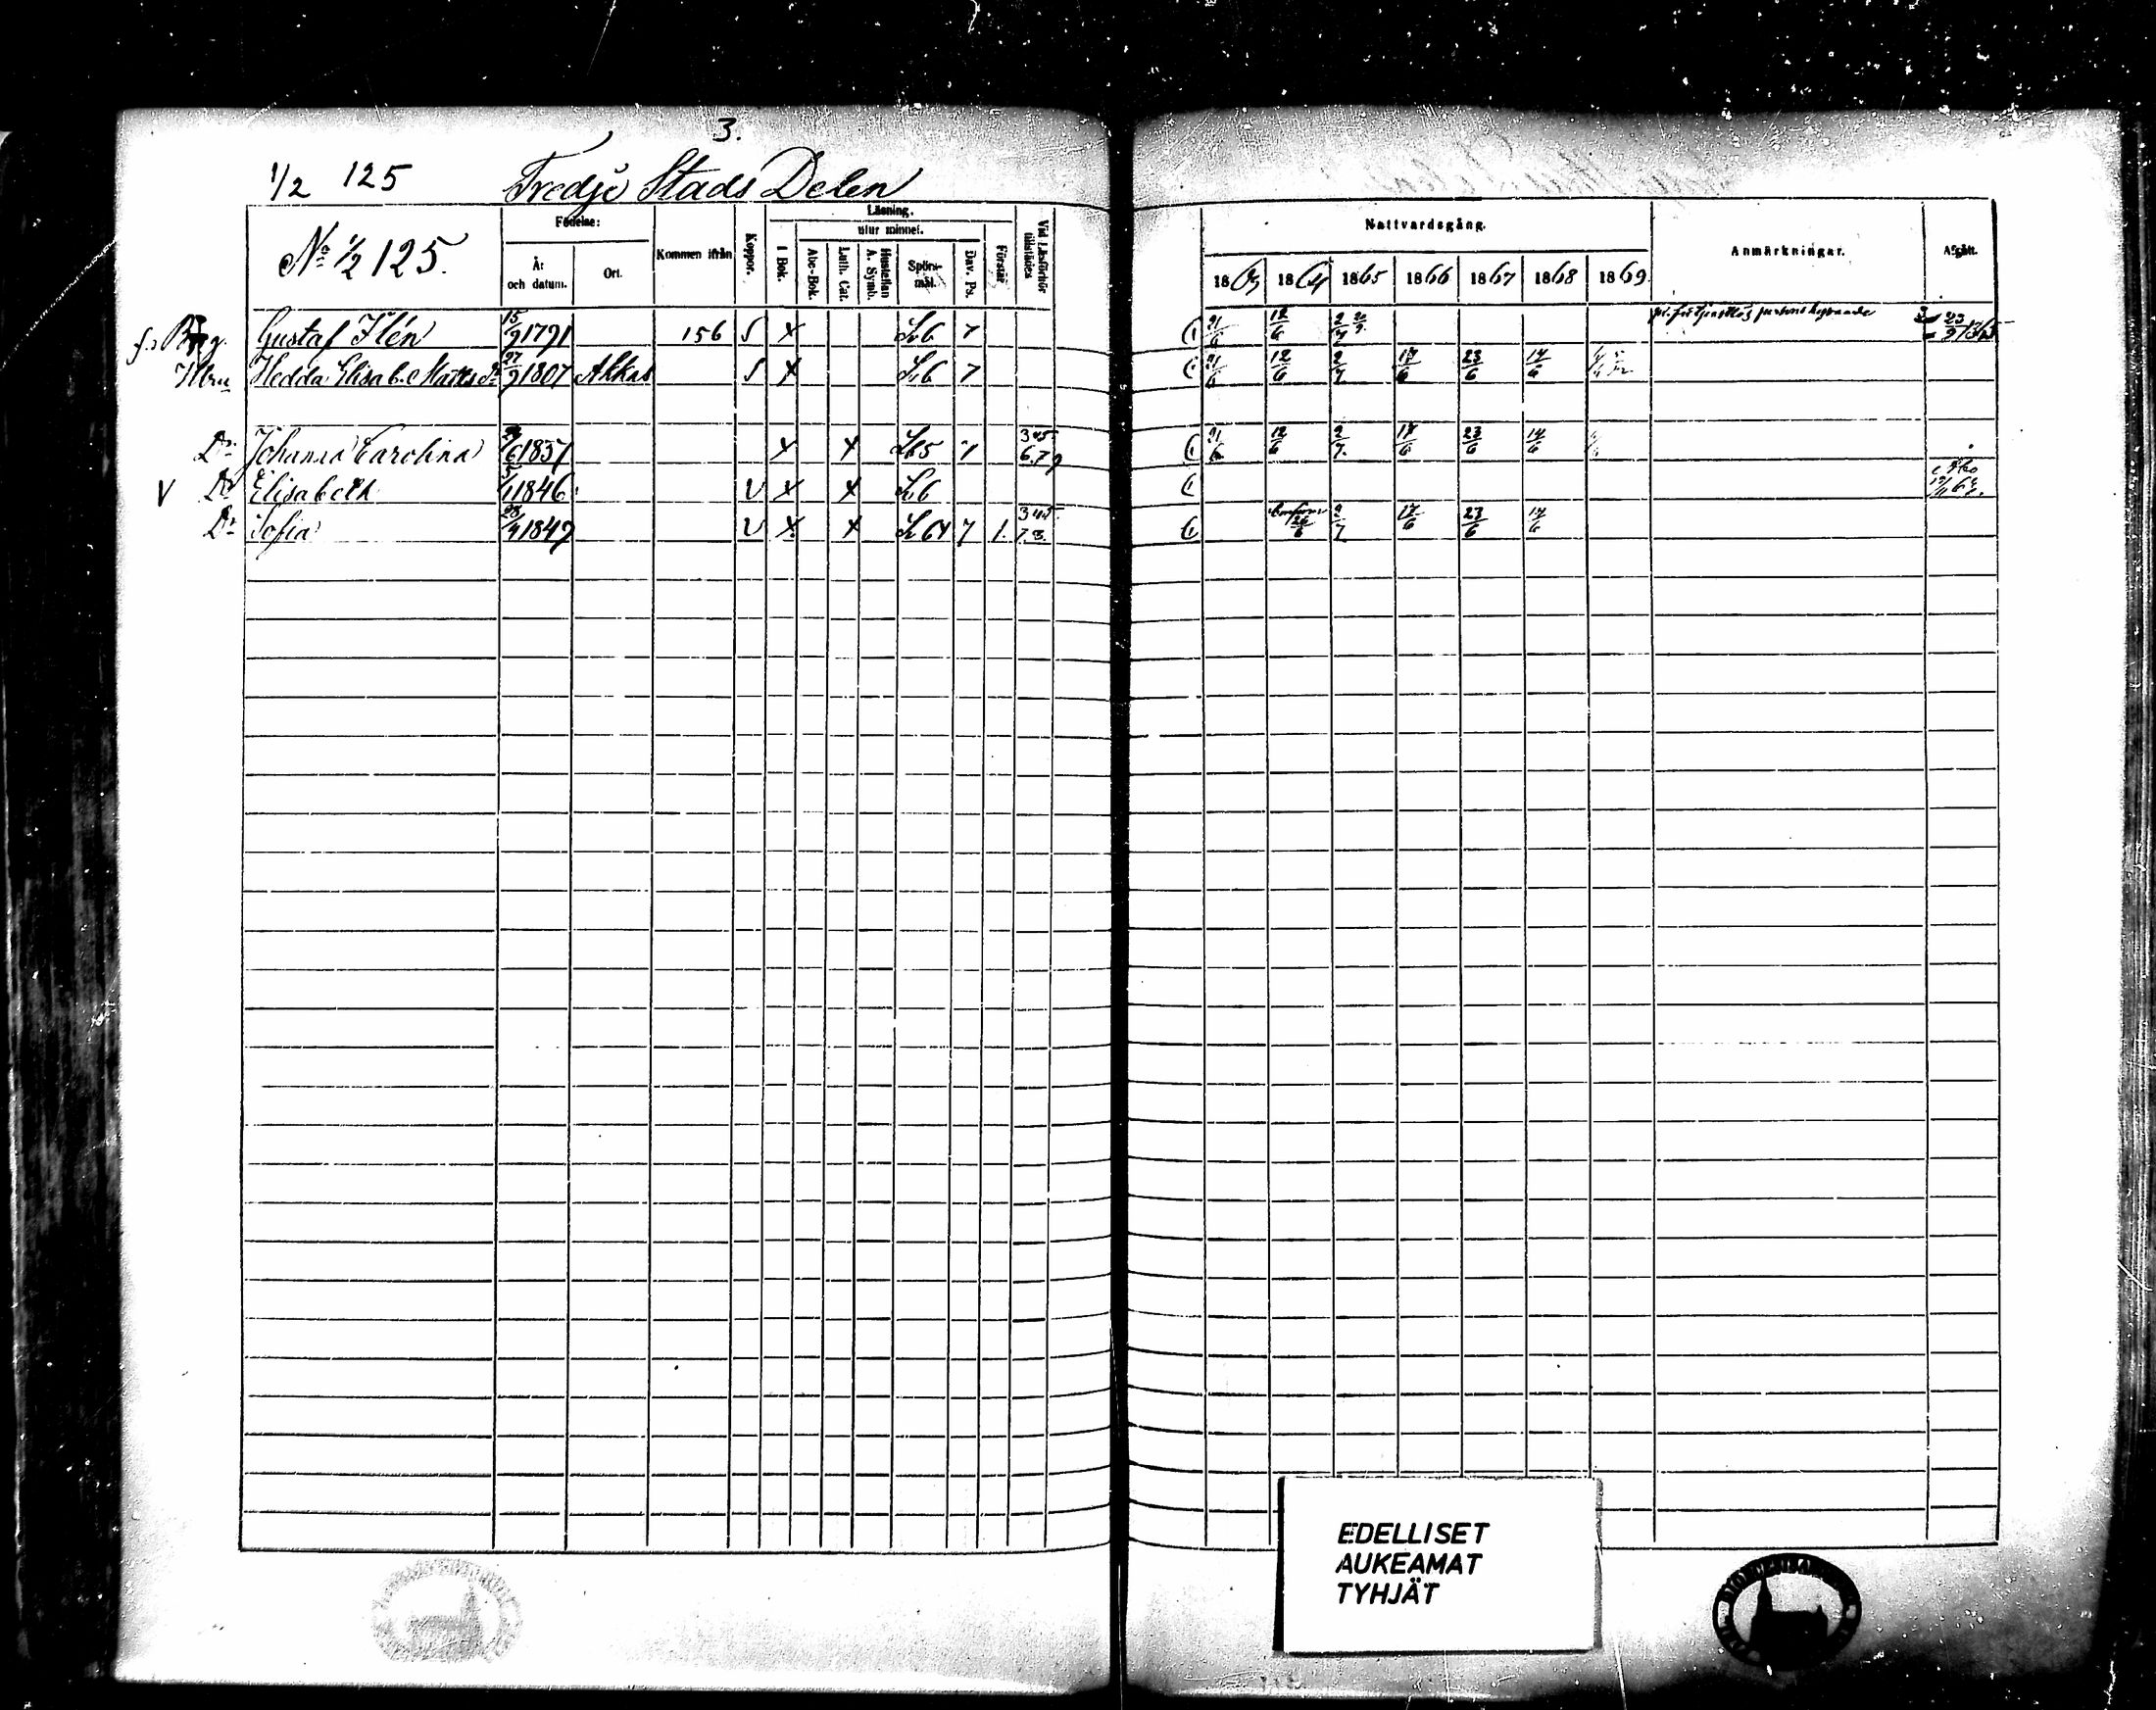 3.
1/2 125 Tredje Stads Delen
No 1/2 125.
Födelse:
År och datum.
Ort.
Kommen ifrån
Koppor.
Läsning.
I Bok.
utur minnet.
Abc-Bok.
Luth. Cat.
Hustaflan A. Symb.
Spörs-mål.
Dav. Ps.
Förstår
Vid Läsförhör tillstädes
Nattvardsgång.
1863 1864 1865 1866 1867 1868 1869
Anmärkningar.
Afgått.
Gustaf Ilén 15/9 1791 156 S X 6 7 21/6 12/6 2/7 23/9 1865
Hedda Elisab. Matts Dr 27/9 1807 Akkas S X 6 7 21/6 12/6 2/7 17/6 23/6 14/6
Dr Johanna Carolina 1837 X X 5 7 345 6.7.9 21/6 12/6 2/7 17/6 23/6 14/6
V Dr Elisabeth 1846 V X X 6
Dr Sofia 28/4 1849 V X X 64 7 1. 345 7.8. 26/6 2/7 17/6 23/6 14/6
EDELLISET
AUKEAMAT
TYHJÄT